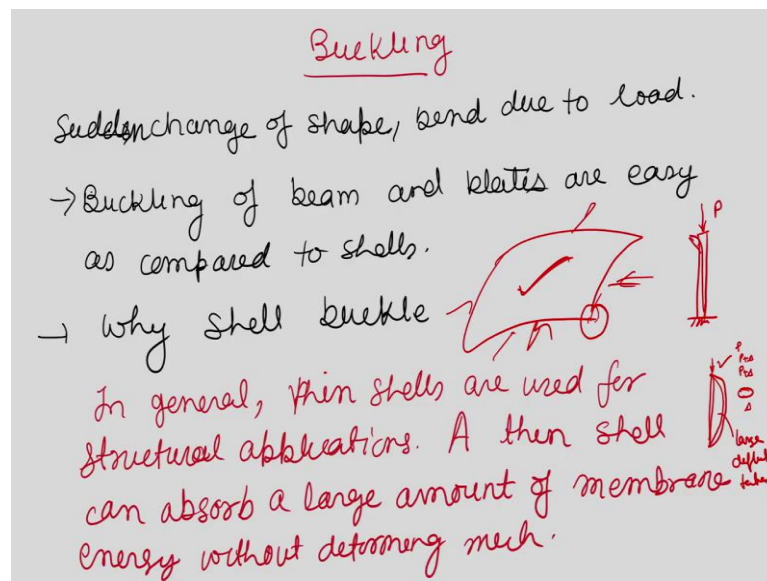 Buckling
Sudden change of shape, bend due to load.
→ Buckling of beam and plates are easy
as compared to shells.
P
→ Why shell buckle
In general, thin shells are used for
structural applications. A then shell
can absorb a large amount of membrane
energy without deforming much.
P
P+Δ
P+Δ
Δ
large